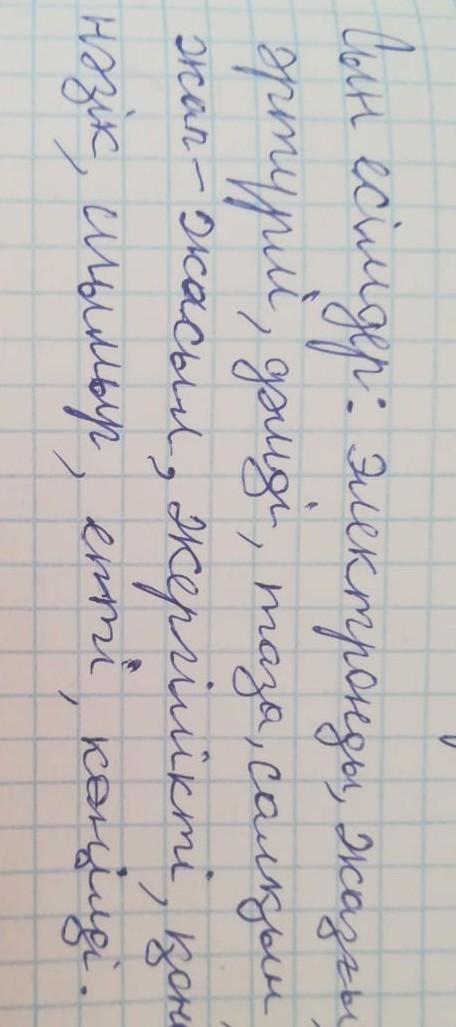 Сын есімдер: Электронды, Жазғы,
әртүрлі, дәмді, таза, салқын,
жап-жасыл, жергілікті,
нәзік, шымыр, епті, көңілді.